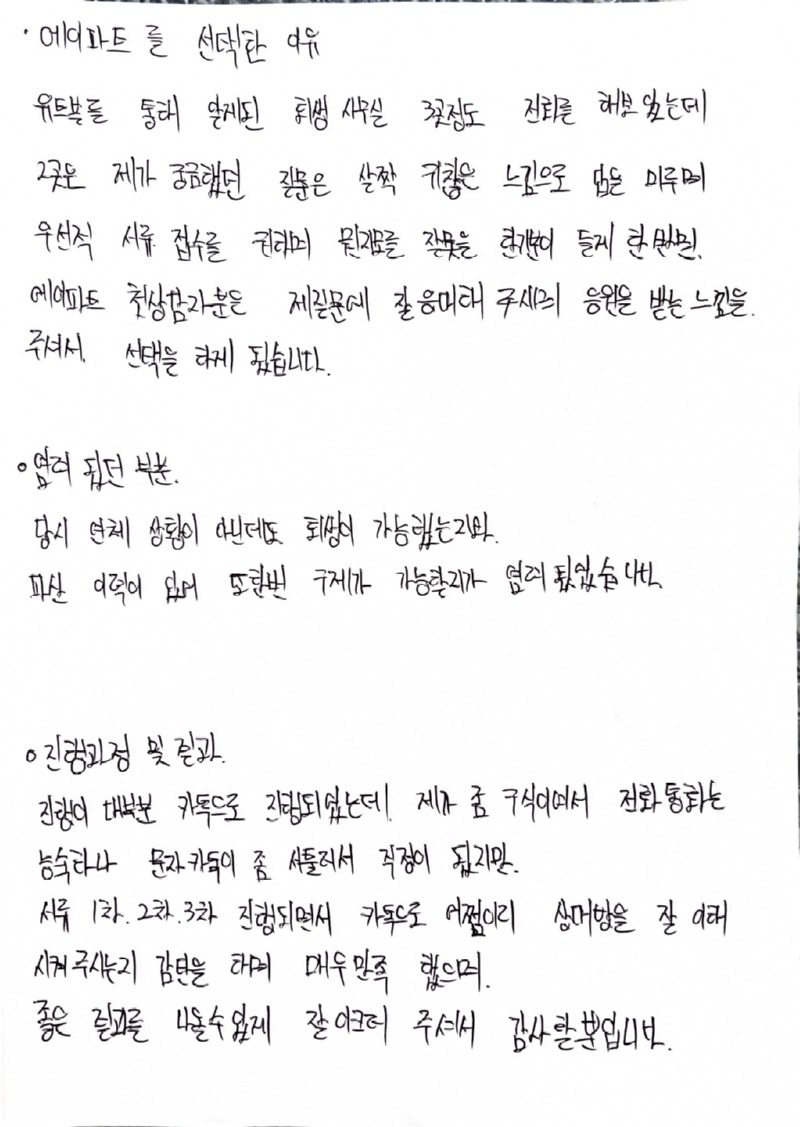 · 에이파트를 선택한 이유
유트브를 통해 알게된 회생 사무실 3곳정도 전화를 해보았는데
2곳은 제가 궁금했던 질문은 살짝 귀찮은 느낌으로 답을 미루며
우선적 서류 접수를 권하며 뭔가모를 잘못을 한기분이 들게 한 반면.
에이파트 첫상담자분은 제질문에 잘 응대해 주시며 응원을 받는 느낌을.
주셔서. 선택을 하게 됬습니다.
∘ 염려 됬던 부분.
당시 연체 상황이 아닌데도 회생이 가능했는지와.
파산 이력이 있어 또한번 구제가 가능할지가 염려 됬었습니다.
∘ 진행과정 및 결과.
진행이 대부분 카톡으로 진행되었는데. 제가 좀 구식이여서 전화통화는
능숙하나 문자카톡이 좀 서툴러서 걱정이 됬지만.
서류 1차. 2차. 3차 진행되면서 카톡으로 어쩜이리 상대방을 잘 이해
시켜주시는지 감탄을 하며 매우만족 했으며.
좋은 결과를 나올수있게 잘 이끄러 주셔서 감사할뿐입니다.